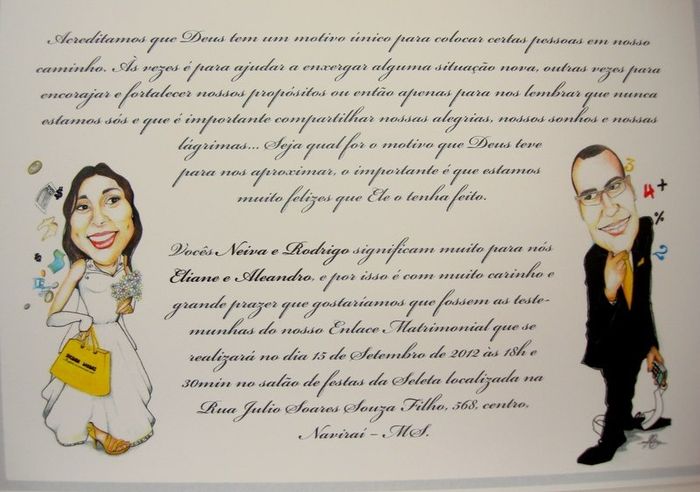 Acreditamos que Deus tem um motivo único para colocar certas pessoas em nosso
caminho. Às vezes é para ajudar a enxergar alguma situação nova, outras vezes para
encorajar e fortalecer nossos propósitos ou então apenas para nos lembrar que nunca
estamos sós e que é importante compartilhar nossas alegrias, nossos sonhos e nossas
lágrimas... Seja qual for o motivo que Deus teve
para nos aproximar, o importante é que estamos
muito felizes que Ele o tenha feito.
Vocês Neiva e Rodrigo significam muito para nós
Eliane e Aleandro, e por isso é com muito carinho e
grande prazer que gostaríamos que fossem as teste-
munhas do nosso Enlace Matrimonial que se
realizará no dia 15 de Setembro de 2012 às 18h e
30min no salão de festas da Seleta localizada na
Rua Julio Soares Souza Filho, 568, centro,
Naviraí – MS.
$
3
4 +
%
2